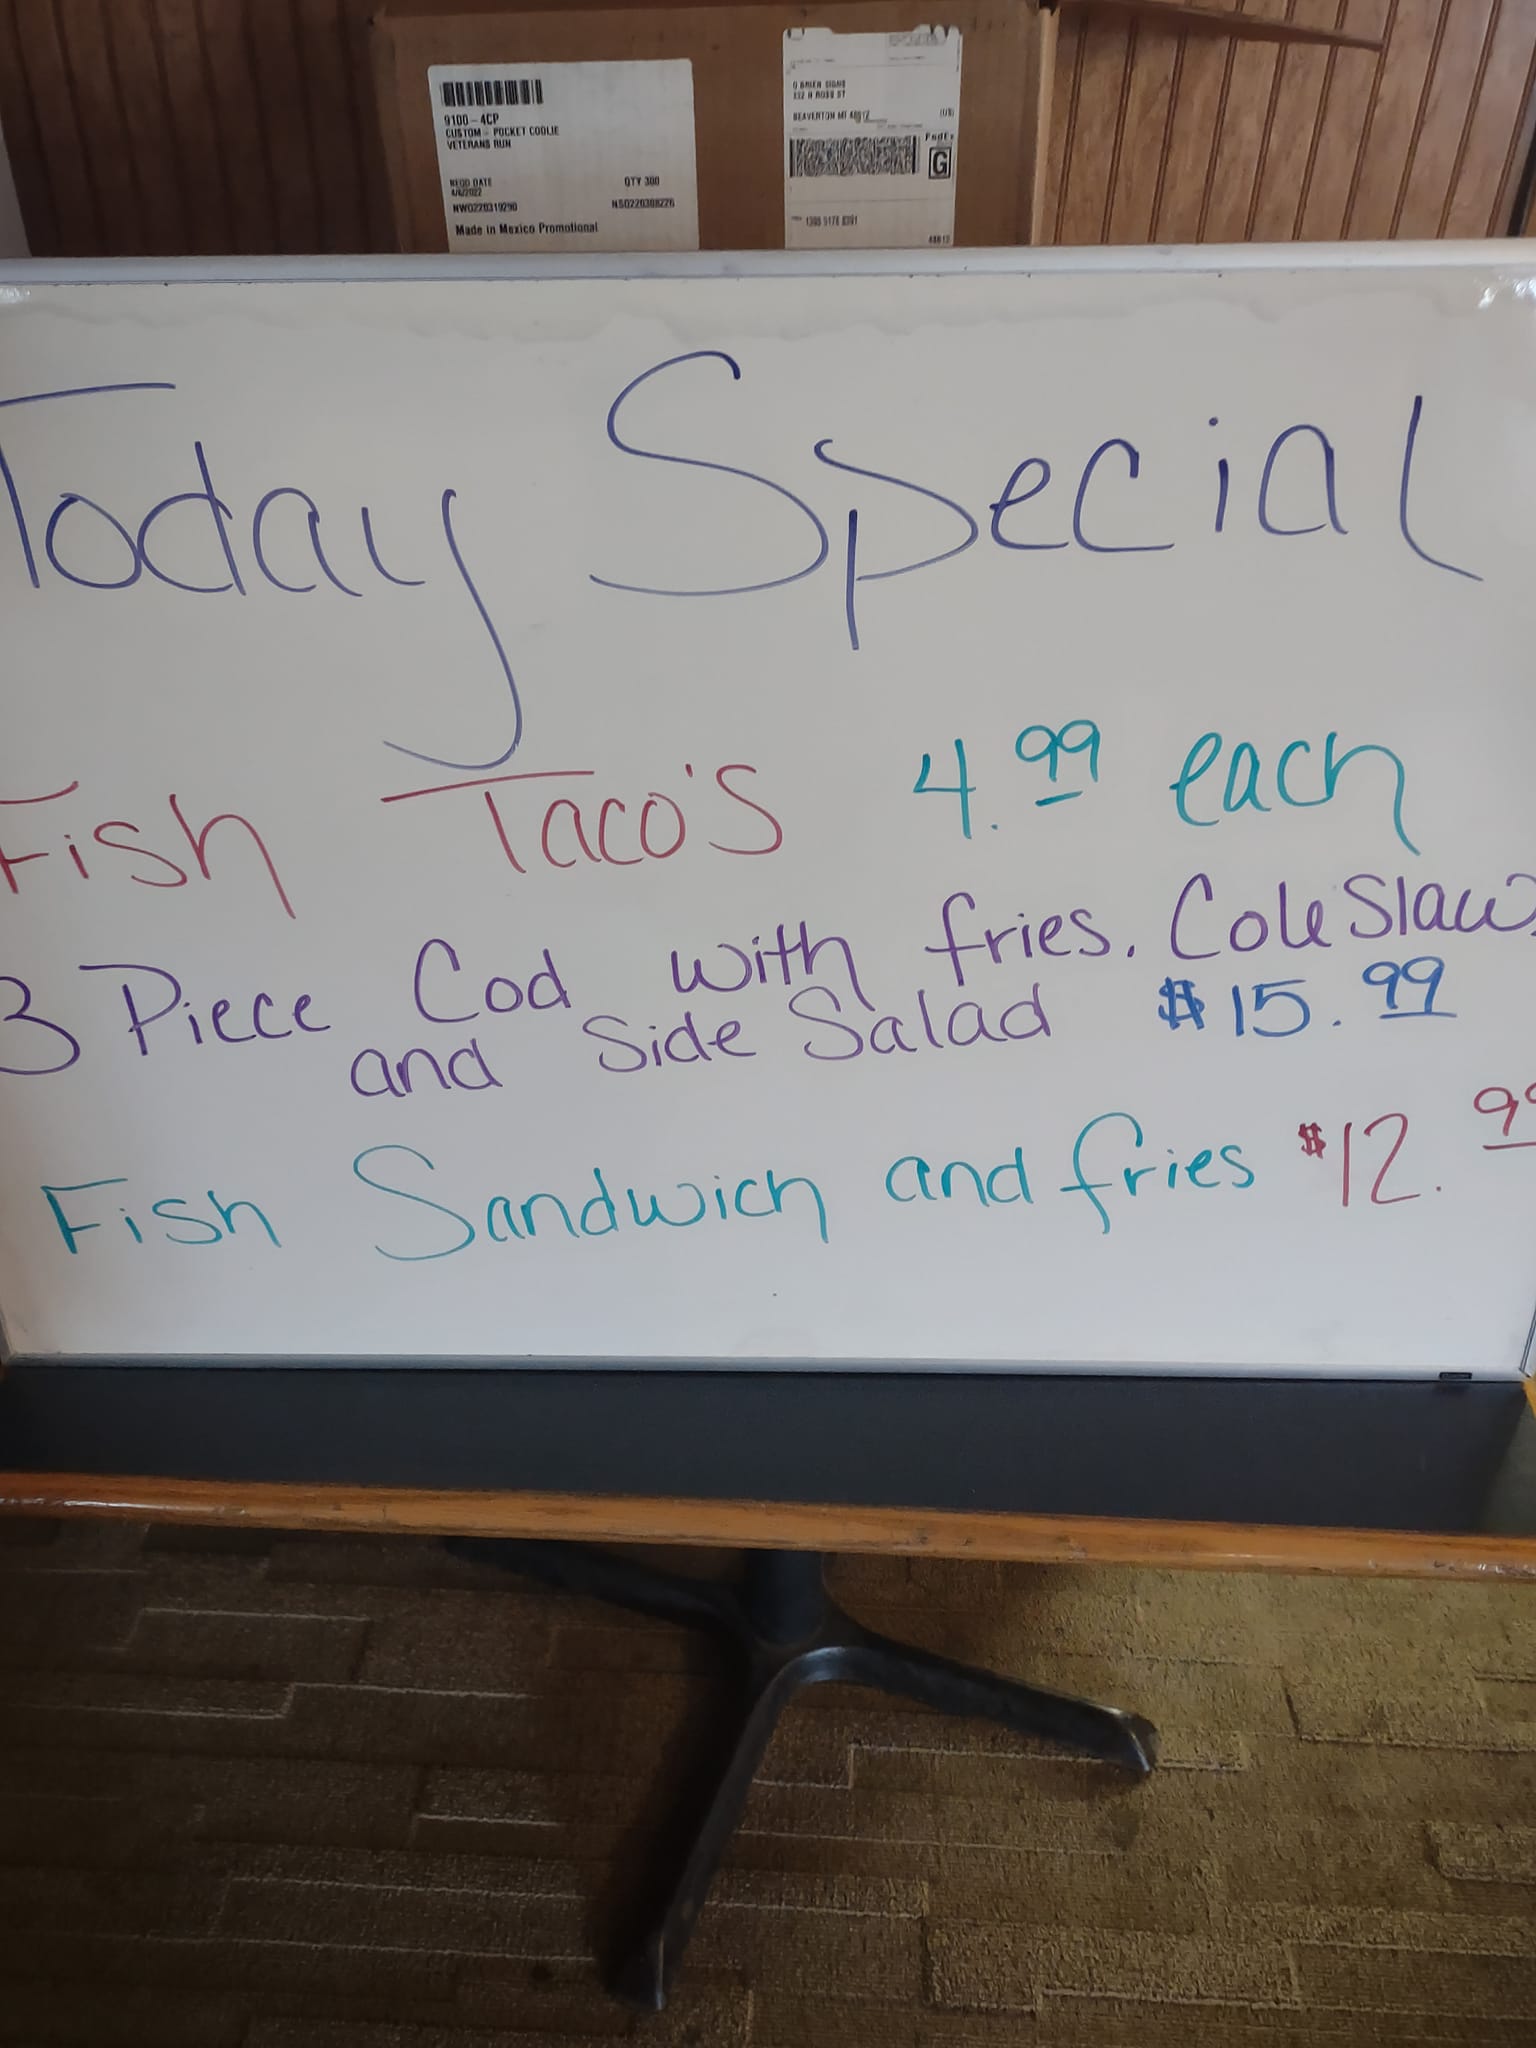 9100-4CP
CUSTOM - POCKET COOLIE
VETERANS RUN
REQD DATE
4/6/2022
QTY 300
NWO220319290
NSO220308226
Made in Mexico Promotional
O BRIEN SIGNS
BEAVERTON MI 48612
(US)
FedEx
G
48612
Today Special
Fish Taco's 4.99 each
3 Piece Cod with fries. Cole Slaw.
and Side Salad $15.99
Fish Sandwich and fries $12.99